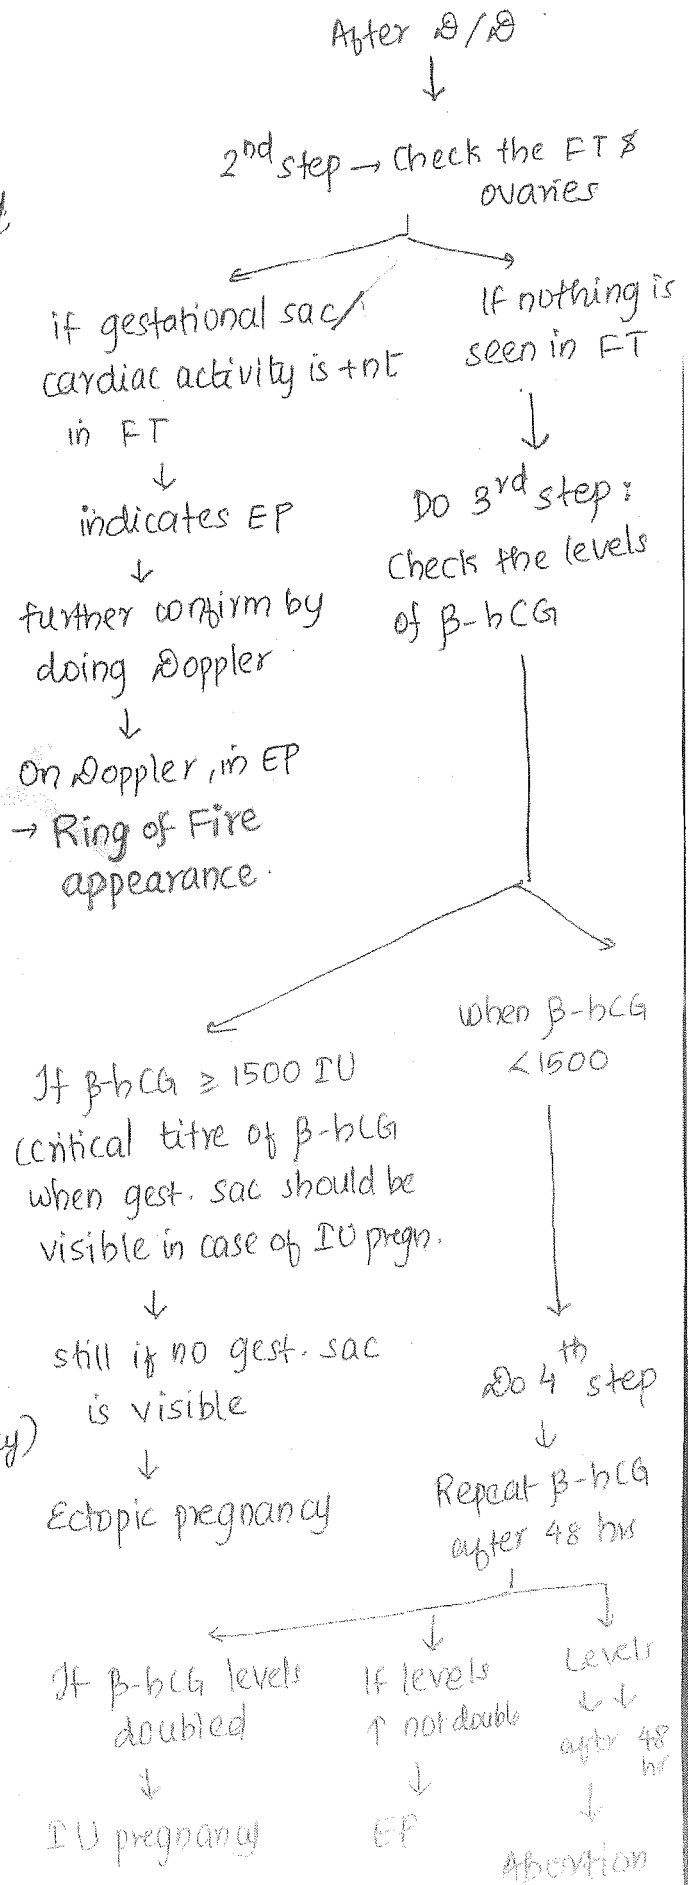 After D/D
↓
2nd step → Check the FT &
ovaries
if gestational sac/
cardiac activity is +nt
in FT
↓
indicates EP
↓
further confirm by
doing Doppler
↓
On Doppler, in EP
→ Ring of Fire
appearance.
If nothing is
seen in FT
↓
Do 3rd step:
Check the levels
of β-hCG
If β-hCG ≥ 1500 IU
(critical titre of β-hCG
when gest. sac should be
visible in case of IU pregn.
↓
still if no gest. sac
is visible
↓
Ectopic pregnancy
when β-hCG
<1500
↓
Do 4th step
↓
Repeat β-hCG
after 48 hrs
If β-hCG levels
doubled
↓
IU pregnancy
If levels
↑ not double
↓
EP
Levels
↓↓
after 48
hr
↓
Abortion